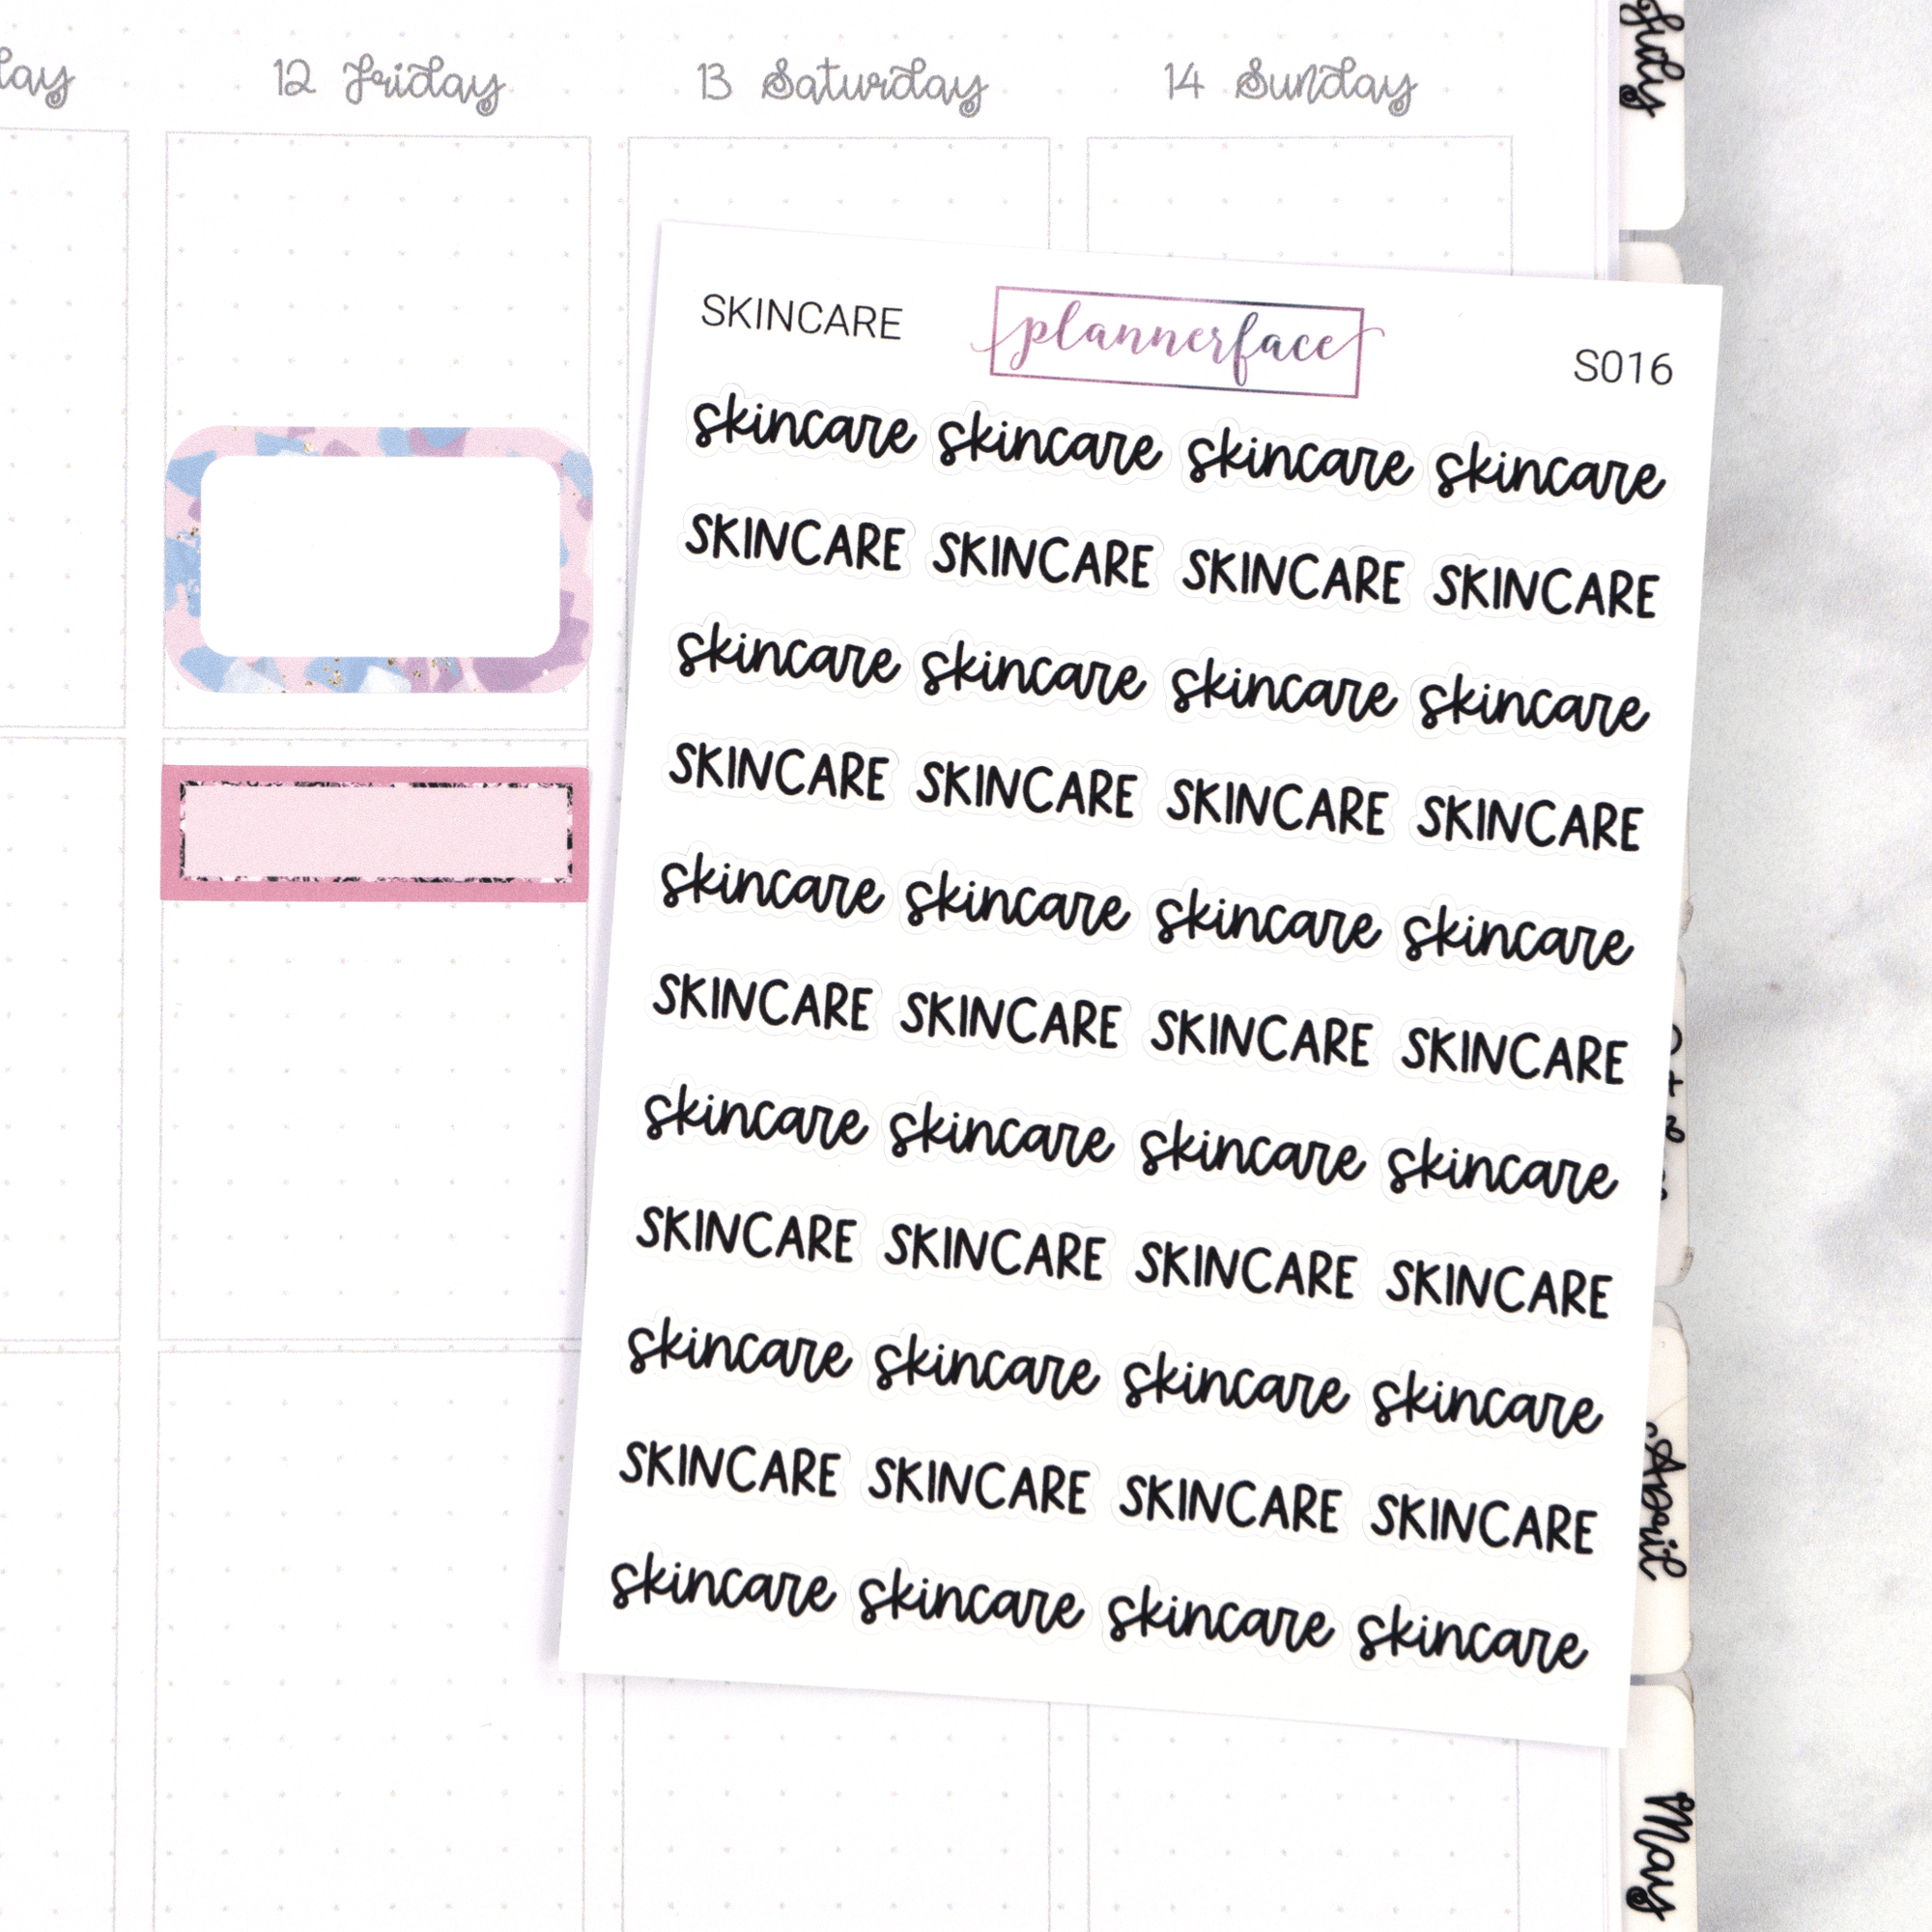 12 Friday 13 Saturday 14 Sunday
July
SKINCARE plannerface S016
skincare skincare skincare skincare
SKINCARE SKINCARE SKINCARE SKINCARE
skincare skincare skincare skincare
SKINCARE SKINCARE SKINCARE SKINCARE
skincare skincare skincare skincare
SKINCARE SKINCARE SKINCARE SKINCARE
skincare skincare skincare skincare
SKINCARE SKINCARE SKINCARE SKINCARE
skincare skincare skincare skincare
SKINCARE SKINCARE SKINCARE SKINCARE
skincare skincare skincare skincare
April
May